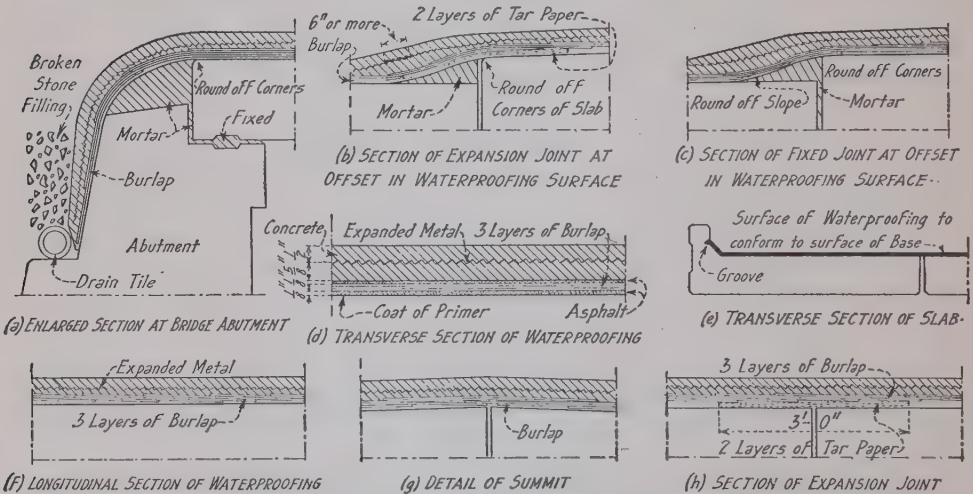 Broken
Stone
Filling
Round off Corners
Mortar
Fixed
Burlap
Abutment
Drain Tile
(a) ENLARGED SECTION AT BRIDGE ABUTMENT
6" or more
2 Layers of Tar Paper
Burlap
Mortar
Round off
Corners of Slab
(b) SECTION OF EXPANSION JOINT AT
OFFSET IN WATERPROOFING SURFACE
Round off Corners
Round off Slope
Mortar
(c) SECTION OF FIXED JOINT AT OFFSET
IN WATERPROOFING SURFACE
Concrete
Expanded Metal
3 Layers of Burlap
Coat of Primer
Asphalt
(d) TRANSVERSE SECTION OF WATERPROOFING
Surface of Waterproofing to
conform to surface of Base
Groove
(e) TRANSVERSE SECTION OF SLAB
Expanded Metal
3 Layers of Burlap
(f) LONGITUDINAL SECTION OF WATERPROOFING
Burlap
(g) DETAIL OF SUMMIT
3 Layers of Burlap
3'-0"
2 Layers of Tar Paper
(h) SECTION OF EXPANSION JOINT